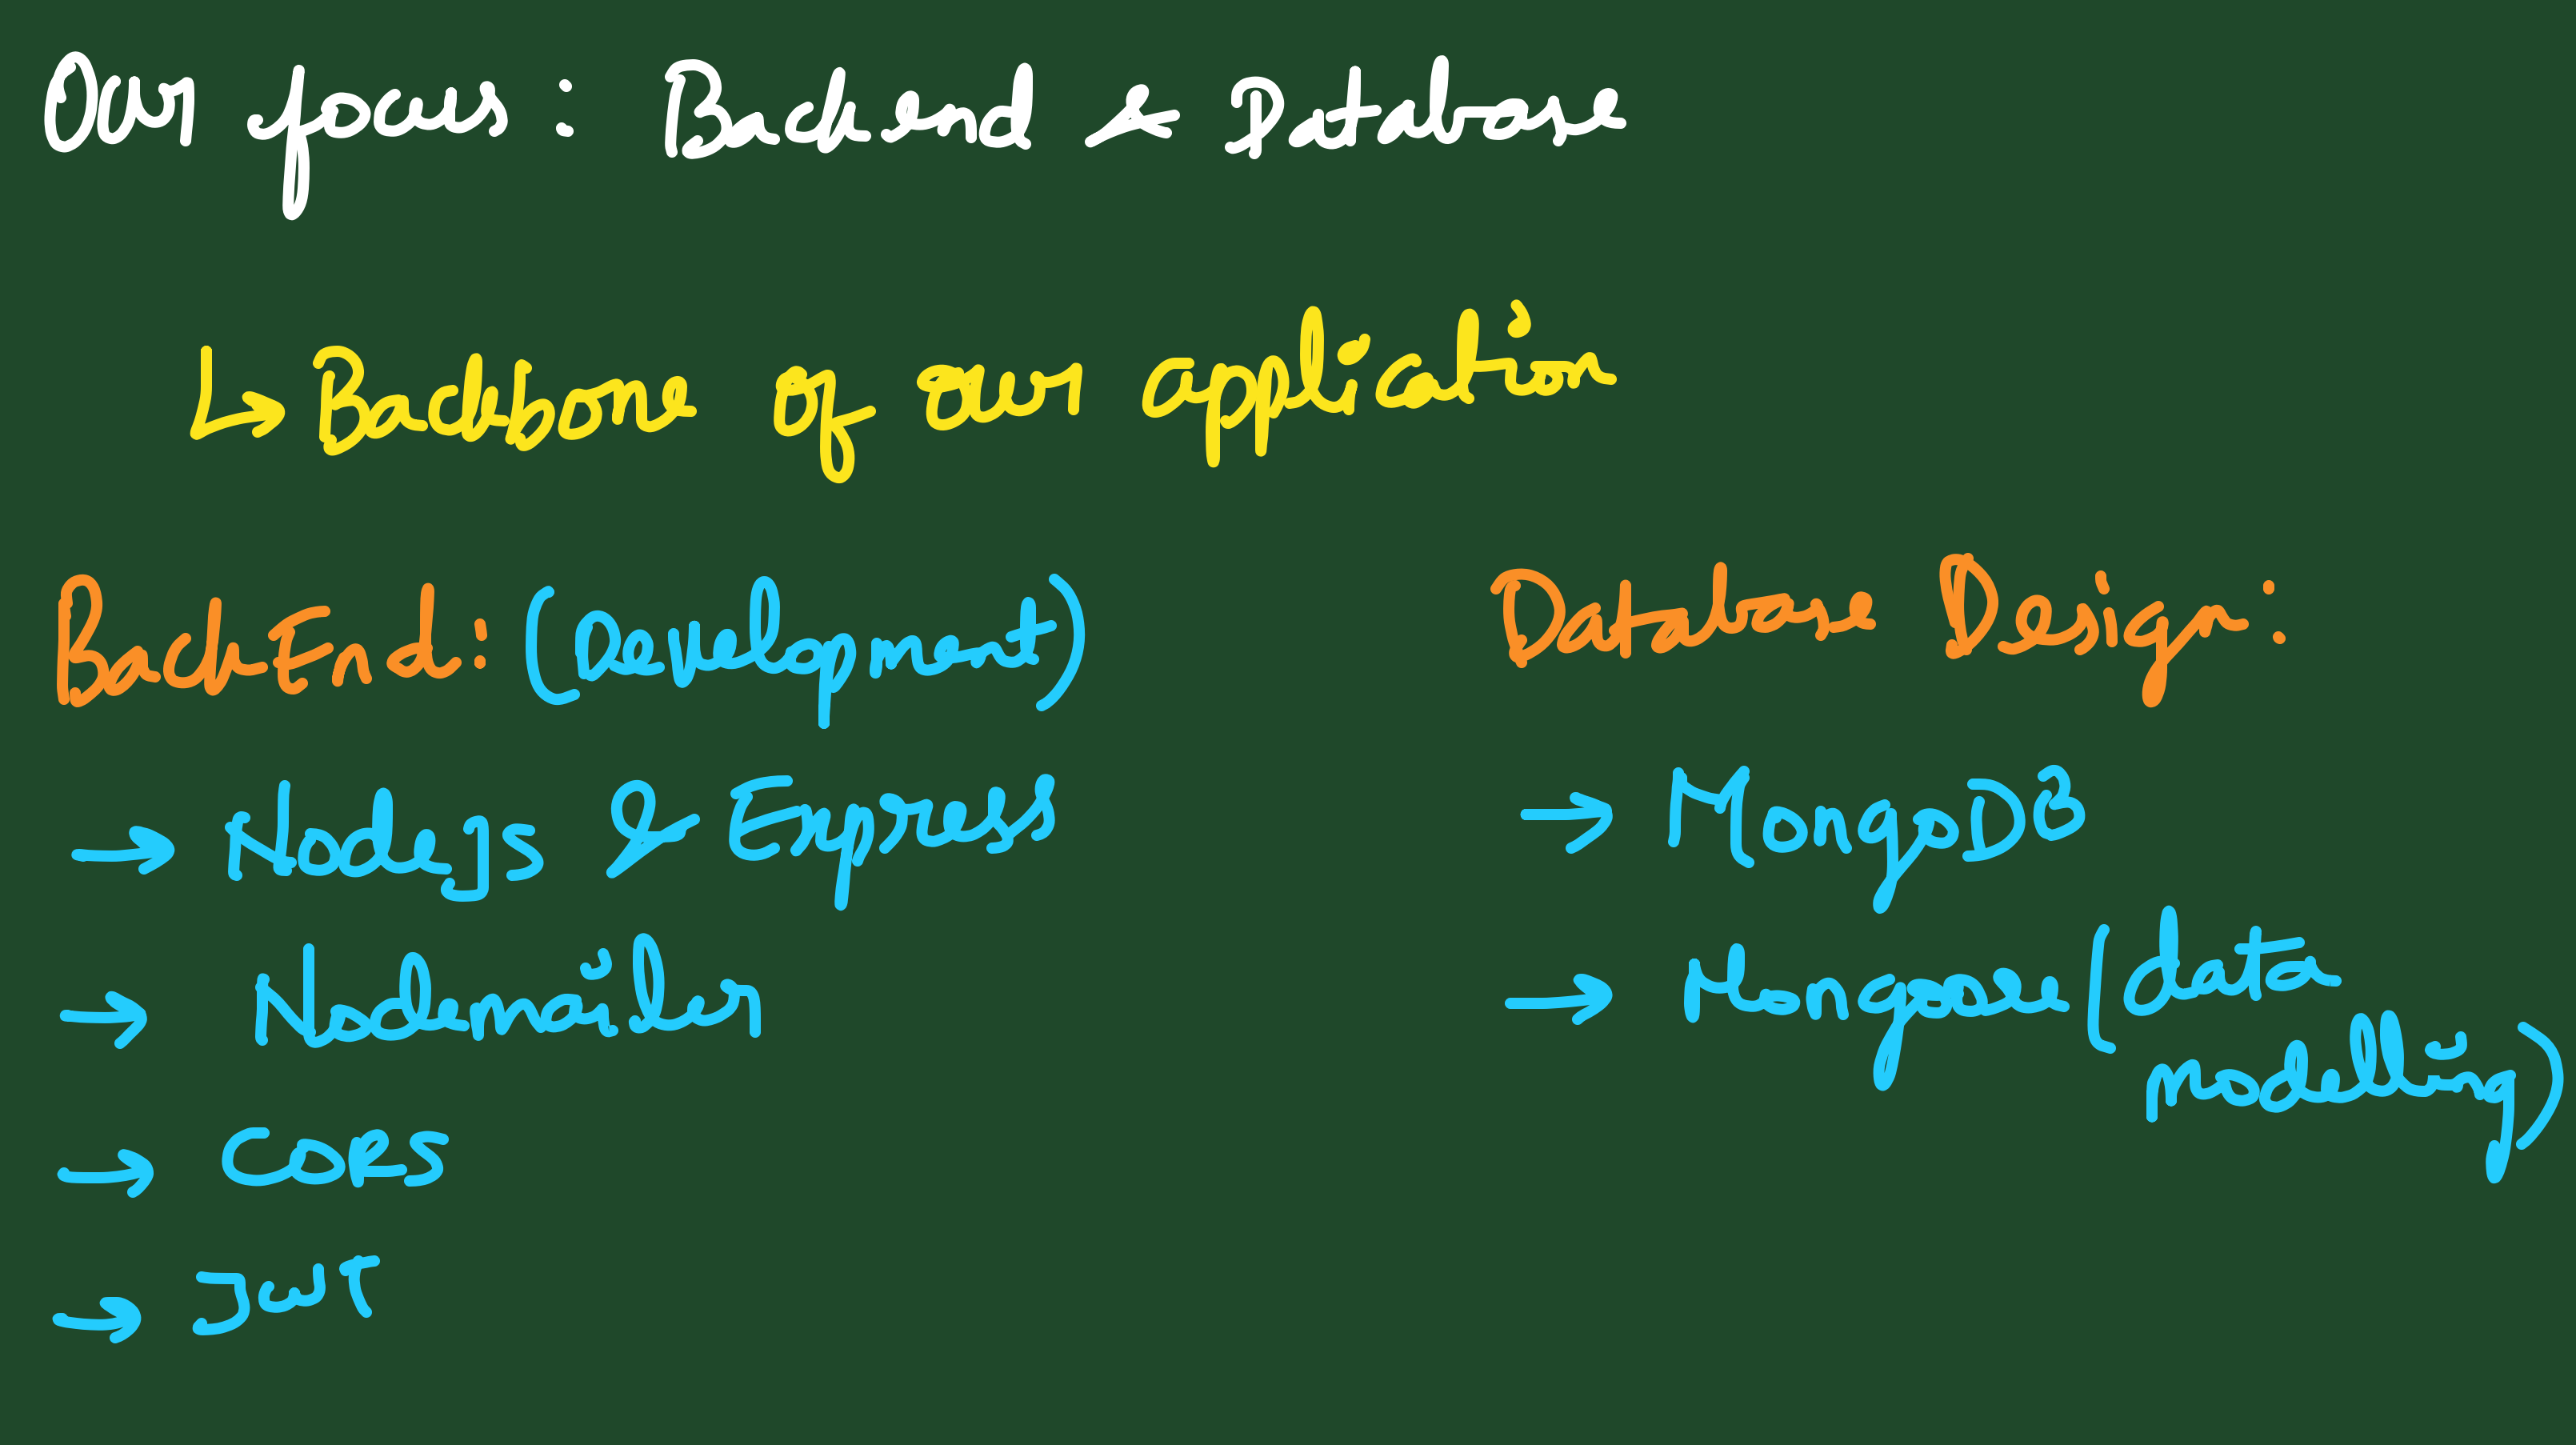 Our focus : Backend & Database
↳ Backbone of our application
BackEnd: (Development)
→ Nodejs & Express
→ Nodemailer
→ CORS
→ JWT
Database Design:
→ MongoDB
→ Mongoose (data
modelling)